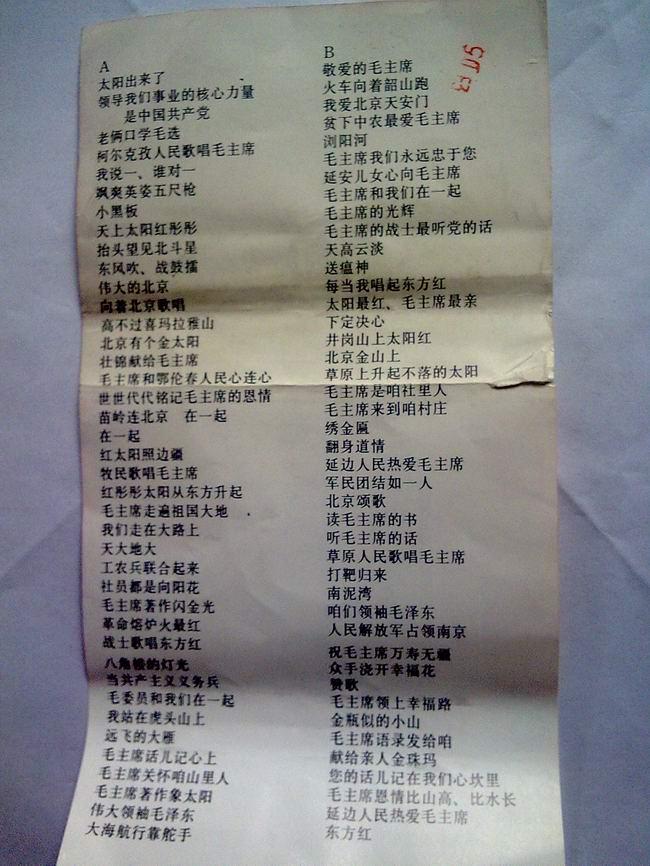 A
太阳出来了
领导我们事业的核心力量
是中国共产党
老俩口学毛选
柯尔克孜人民歌唱毛主席
我说一、谁对一
飒爽英姿五尺枪
小黑板
天上太阳红彤彤
抬头望见北斗星
东风吹、战鼓擂
伟大的北京
向着北京歌唱
高不过喜玛拉雅山
北京有个金太阳
壮锦献给毛主席
毛主席和鄂伦春人民心连心
世世代代铭记毛主席的恩情
苗岭连北京 在一起
在一起
红太阳照边疆
牧民歌唱毛主席
红彤彤太阳从东方升起
毛主席走遍祖国大地
我们走在大路上
天大地大
工农兵联合起来
社员都是向阳花
毛主席著作闪金光
革命熔炉火最红
战士歌唱东方红
八角楼的灯光
当共产主义义务兵
毛委员和我们在一起
我站在虎头山上
远飞的大雁
毛主席话儿记心上
毛主席关怀咱山里人
毛主席著作象太阳
伟大领袖毛泽东
大海航行靠舵手
B
敬爱的毛主席
火车向着韶山跑
我爱北京天安门
贫下中农最爱毛主席
浏阳河
毛主席我们永远忠于您
延安儿女心向毛主席
毛主席和我们在一起
毛主席的光辉
毛主席的战士最听党的话
天高云淡
送瘟神
每当我唱起东方红
太阳最红、毛主席最亲
下定决心
井岗山上太阳红
北京金山上
草原上升起不落的太阳
毛主席是咱社里人
毛主席来到咱村庄
绣金匾
翻身道情
延边人民热爱毛主席
军民团结如一人
北京颂歌
读毛主席的书
听毛主席的话
草原人民歌唱毛主席
打靶归来
南泥湾
咱们领袖毛泽东
人民解放军占领南京
祝毛主席万寿无疆
众手浇开幸福花
赞歌
毛主席领上幸福路
金瓶似的小山
毛主席语录发给咱
献给亲人金珠玛
您的话儿记在我们心坎里
毛主席恩情比山高、比水长
延边人民热爱毛主席
东方红